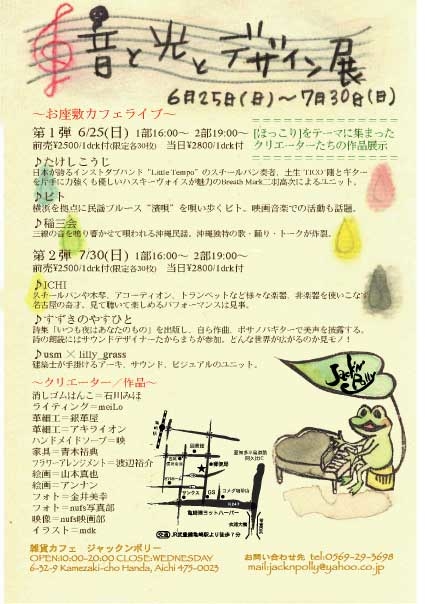 音と光とデザイン展
6月25日(日)～7月30日(日)
～お座敷カフェライブ～
第1弾 6/25(日) 1部16:00～ 2部19:00～
前売¥2500/1dck付(限定各30枚) 当日¥2800/1dck付
[ほっこり]をテーマに集まった
クリエーターたちの作品展示
♪たけしこうじ
日本が誇るインストダブバンド“Little Tempo”のスチールパン奏者、土生“TICO”剛とギター
を片手に力強くも優しいハスキーヴォイスが魅力のBreath Mark二羽高次によるユニット。
♪ピト
横浜を拠点に民謡ブルース“濱唄”を唄い歩くピト。映画音楽での活動も話題。
♪稲三会
三線の音を鳴り響かせて唄われる沖縄民謡。沖縄独特の歌・踊り・トークが炸裂。
第2弾 7/30(日) 1部16:00～ 2部19:00～
前売¥2500/1dck付(限定各30枚) 当日¥2800/1dck付
♪ICHI
スチールパンや木琴、アコーディオン、トランペットなど様々な楽器、非楽器を使いこなす
名古屋の奇才。見て聴いて楽しめるパフォーマンスは見事。
♪すずきのやすひと
詩集「いつも夜はあなたのもの」を出版し、自ら作曲、ボサノバギターで美声を披露する。
詩の朗読にはサウンドデザイナーたからまちが参加。どんな世界が広がるのか見モノ!
♪usm × lilly_grass
建築士が手掛けるアーキ、サウンド、ビジュアルのユニット。
～クリエーター/作品～
消しゴムはんこ=石川みほ
ライティング=meiLo
革細工=銀華屋
革細工=アキライオン
ハンドメイドソープ=暎
家具=青木裕典
フラワーアレンジメント=渡辺裕介
絵画=山本真也
絵画=アンナン
フォト=金井美幸
フォト=nufs写真部
映像=nufs映画部
イラスト=mdk
Jack'n Polly
図書館
郵便局
サンクス
GS
コメダ珈琲店
R247
亀崎港ヨットハーバー
衣浦大橋
JR武豊線亀崎駅より徒歩7分
雑貨カフェ ジャックンポリー
OPEN:10:00-20:00 CLOSE:WEDNESDAY
6-32-9 Kamezaki-cho Handa, Aichi 475-0023
お問い合わせ先 tel:0569-29-3698
mail:jacknpolly@yahoo.co.jp